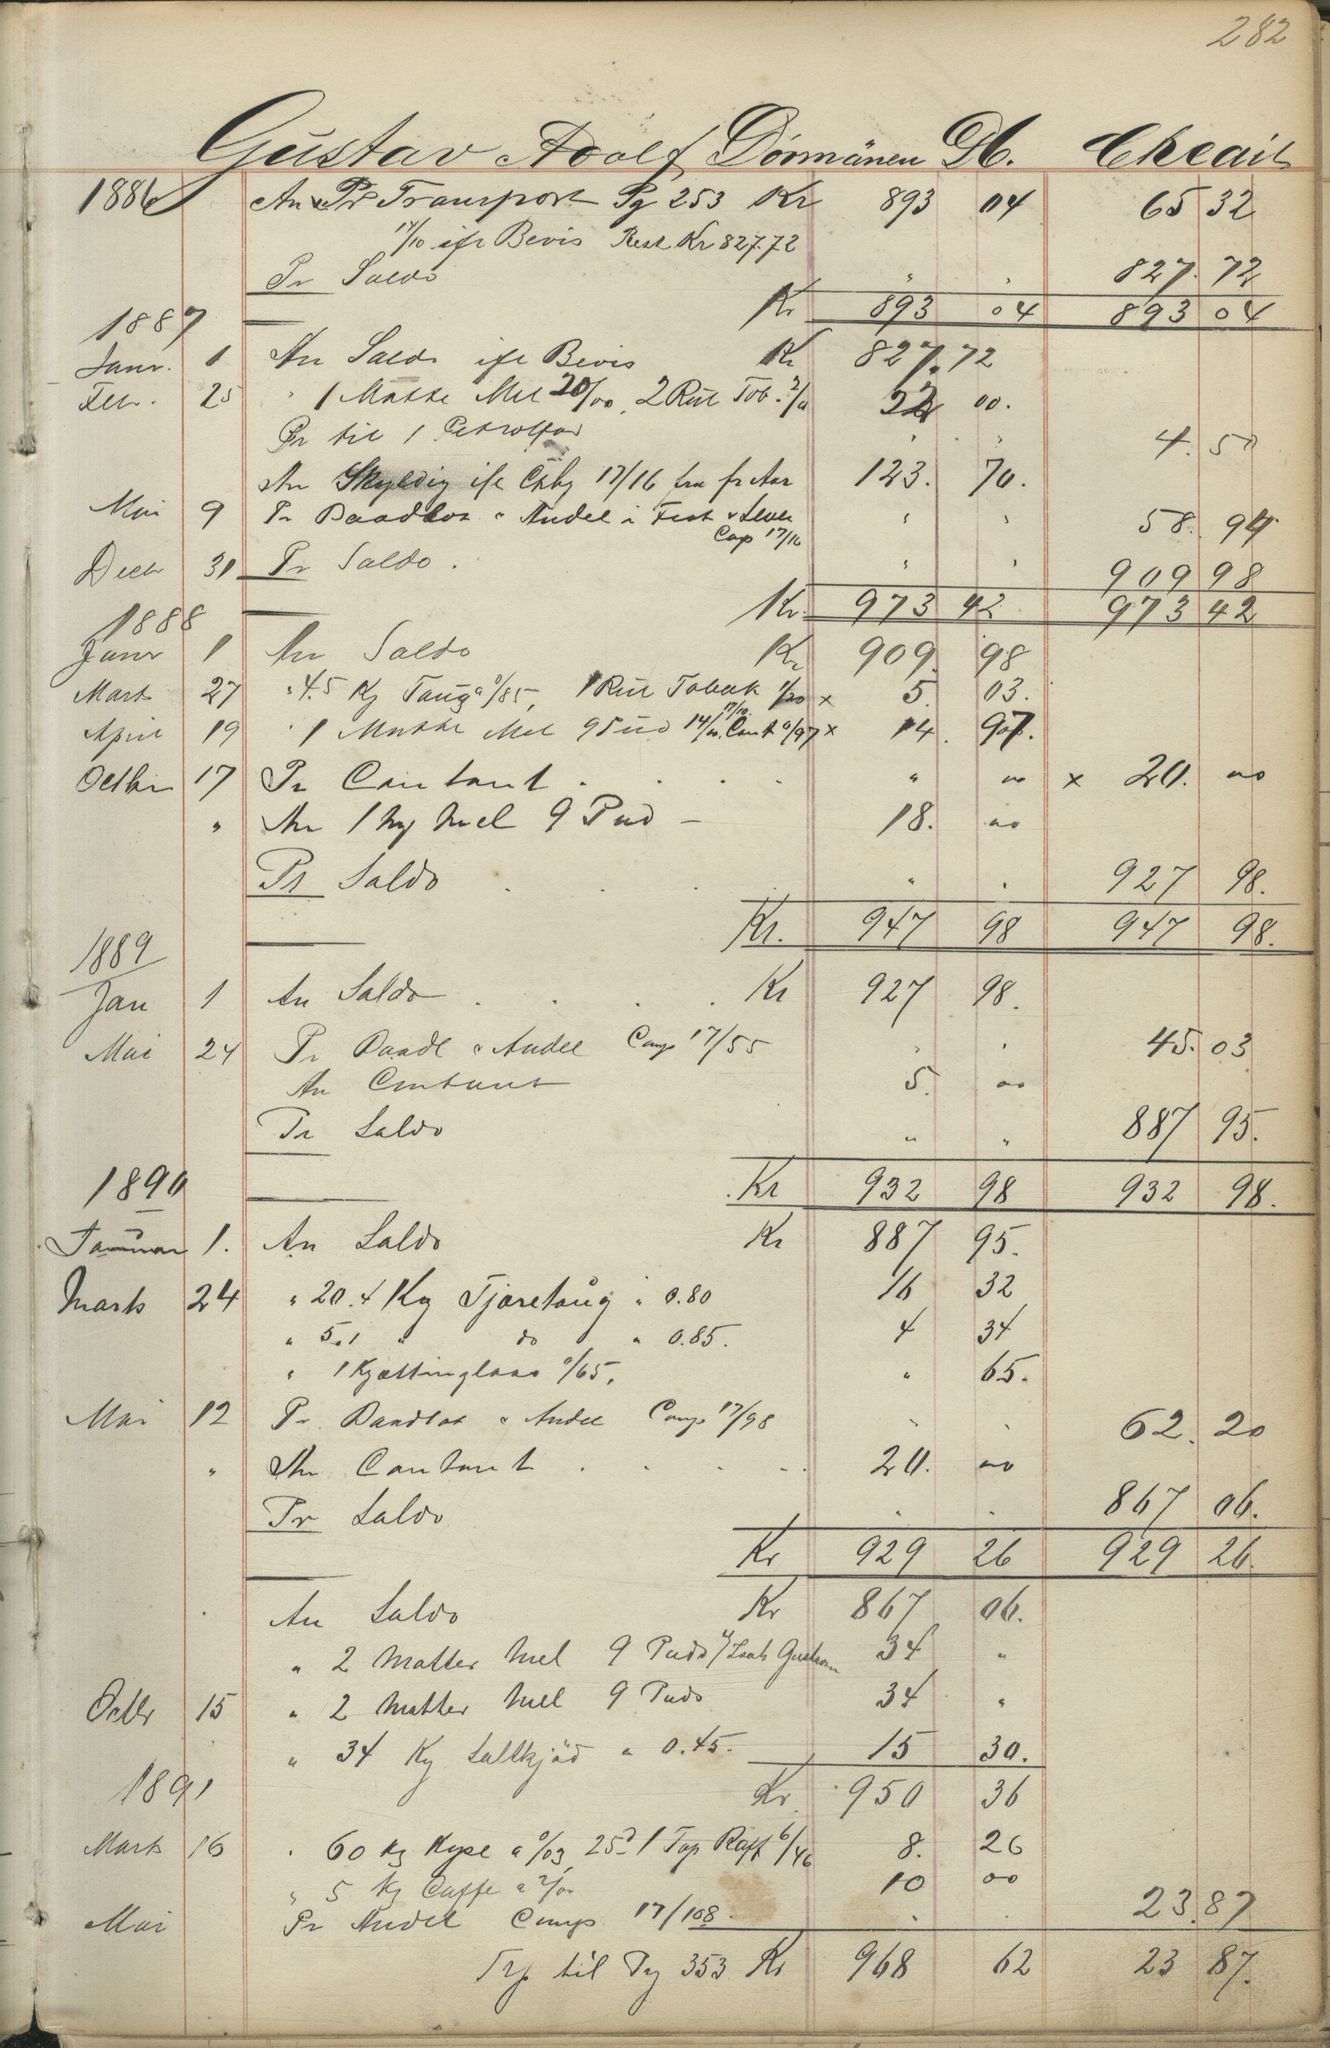 282
Gustav Adolf Dörmänen Db. Chredit
1886 An & Pr Transport Pg 253 Kr 893 04 65 32
17/10 ifr Bevis Rest Kr 827.72
Pr Saldo " " 827. 72
Kr 893 04 893 04
1887
Janr. 1 An Saldo ifl Bevis Kr 827. 72
Febr. 25 " 1 Matte Mel 20/00, 2 Rul Tob. 2/00 22 00.
Pr til 1 Petrolfad " " 4. 50
An Skyldig ifl 17/16 fra fr Aar 123. 70.
Mai 9 Pr Baadlot & Andel i Fisk & Lever " " 58. 94
Cop 17/16
Decbr 31 Pr Saldo. " " 909 98
Kr. 973 42 973 42
1888
Janr 1 An Saldo Kr 909. 98
Marts 27 " 4.5 Kg Taug a 0/85, 1 Rul Tobak 1/20 x 5. 03.
April 19 " 1 Matte Mel 9 Pud 14/00. 17/10. Cont 0/97 x 14. 97.
Octbr 17 Pr Contant . . . . " oo x 20. oo
" An 1 My Mel 9 Pud – 18. oo
Pr Saldo . . . " . 927 98.
Kr. 947 98 947 98.
1889
Jan 1 An Saldo . . . . Kr 927 98.
Mai 24 Pr Baadl & Andel Comp 17/55 " " 45. 03
An Contant 5. oo
Pr Saldo " " 887 95.
1890 Kr 932 98 932 98.
Januar 1. An Saldo Kr 887 95.
Marts 24 " 20.4 Kg Tjæretaug " 0.80 16 32
" 5.1 " do " 0.85. 4 34
" 1 Kjættinglaas 0/65. " 65.
Mai 12 Pr Baadlot & Andel Comp 17/98 " " 62. 20
" An Contant . . . . . 20. oo
Pr Saldo . . 867 06.
Kr 929 26 929 26.
An Saldo Kr 867 06.
" 2 Matter Mel 9 Puds 34 "
Octbr 15 " 2 Matter Mel 9 Puds 34 "
" 34 Kg Saltkjöd a 0.45. 15 30.
1891 Kr. 950 36
Marts 16 " 60 Kg a 0/03, 1 6/46 8. 26
" 5 Kg Caffe a 2/00 10 00
Mai Pr Andel Comp. 17/108. . . 23. 87
Trp til Pg 353 Kr 968 62 23 87.